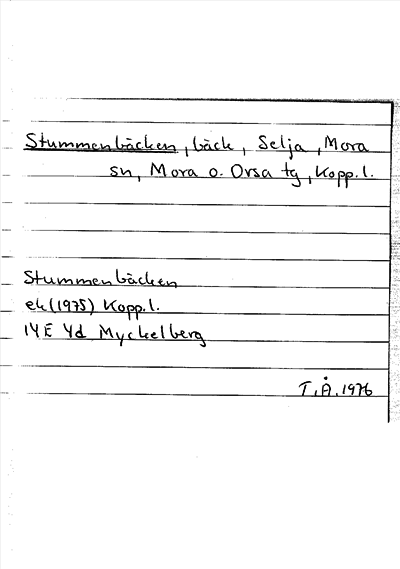 Stummenbäcken, bäck, Selja, Mora
sn, Mora o. Orsa tg, Kopp. l.
Stummenbäcken
ek (1975) Kopp. l.
14E 4d Myckelberg
T. Å. 1976